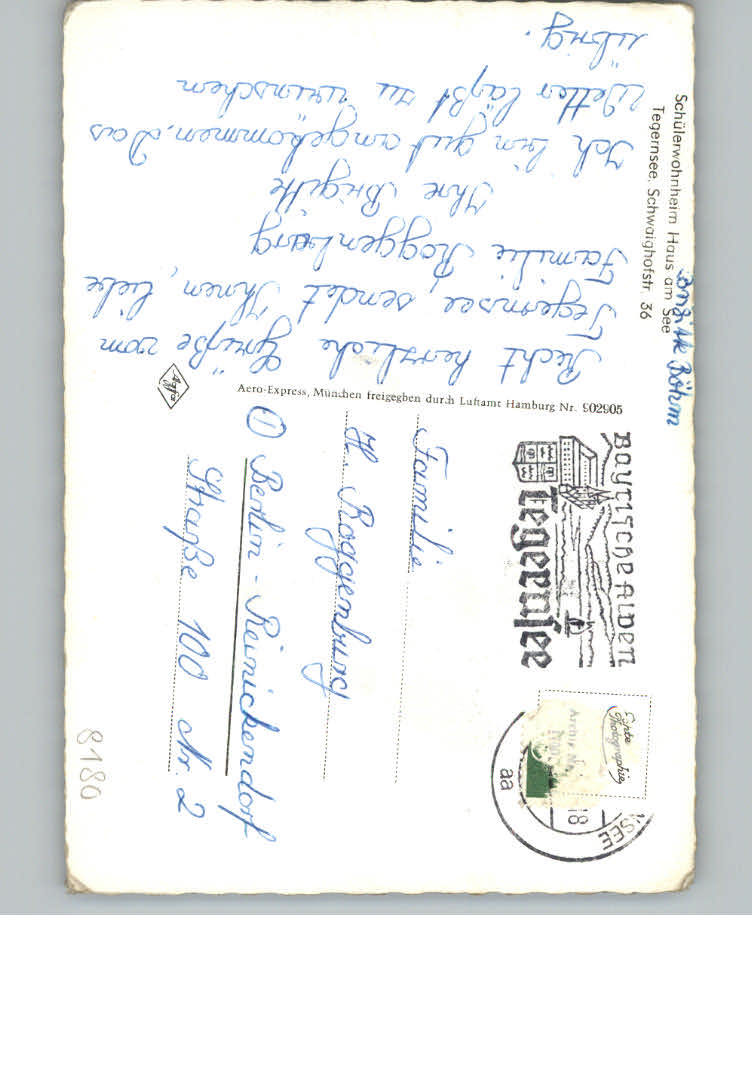 Schülerwohnheim Haus am See
Tegernsee, Schwaighofstr. 36
Brigitte Böhm
Recht herzliche Grüße vom
Tegernsee, sendet Ihnen, liebe
Familie Roggenburg
Ihre Brigitte
Ich bin gut angekommen. Das
Wetter läßt zu wünschen
übrig.
Agfa
Aero-Express, München freigegben durch Luftamt Hamburg Nr. 902905
Bayrische Alpen
Tegernsee
Echte
Photographie
18
aa
NSEE
Familie
H. Roggenburg
① Berlin - Reinickendorf
Straße 100 Nr. 2
8180